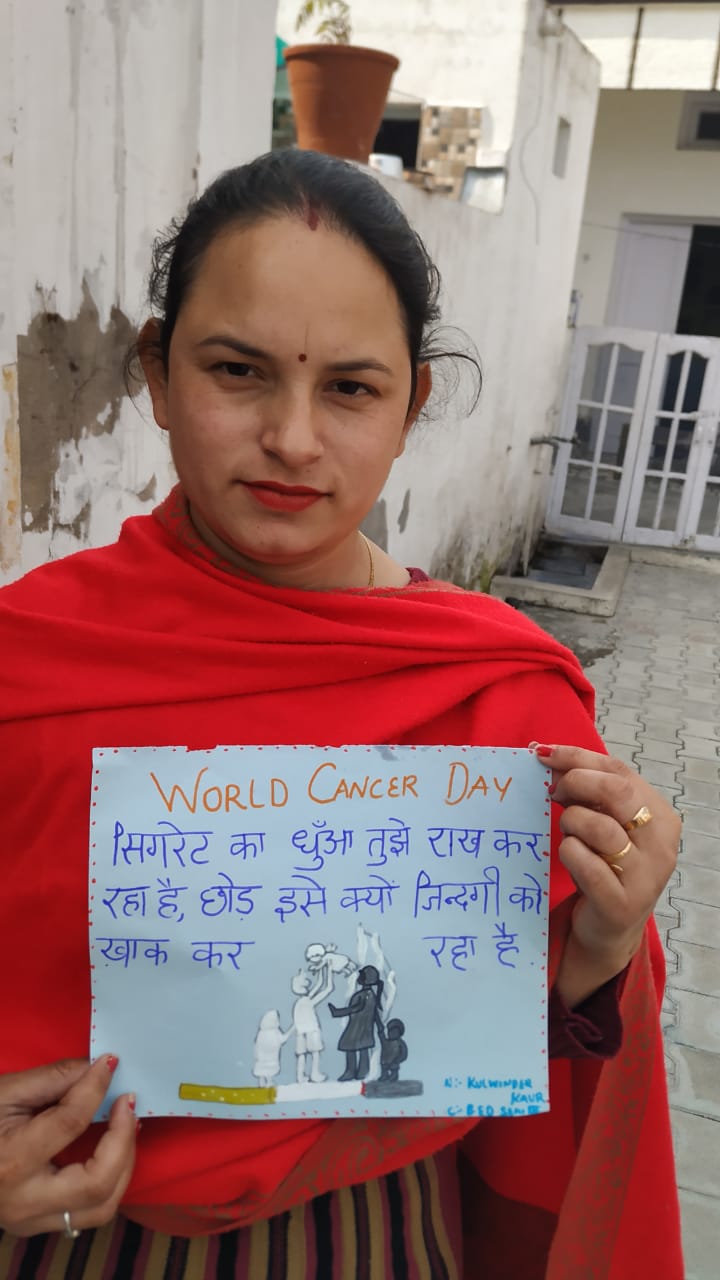 WORLD CANCER DAY
सिगरेट का धुँआ तुझे राख कर
रहा है, छोड़ इसे क्यों जिन्दगी को
ख़ाक कर रहा है.
N:- KULWINDER
KAUR
C:- B.ED SEM III